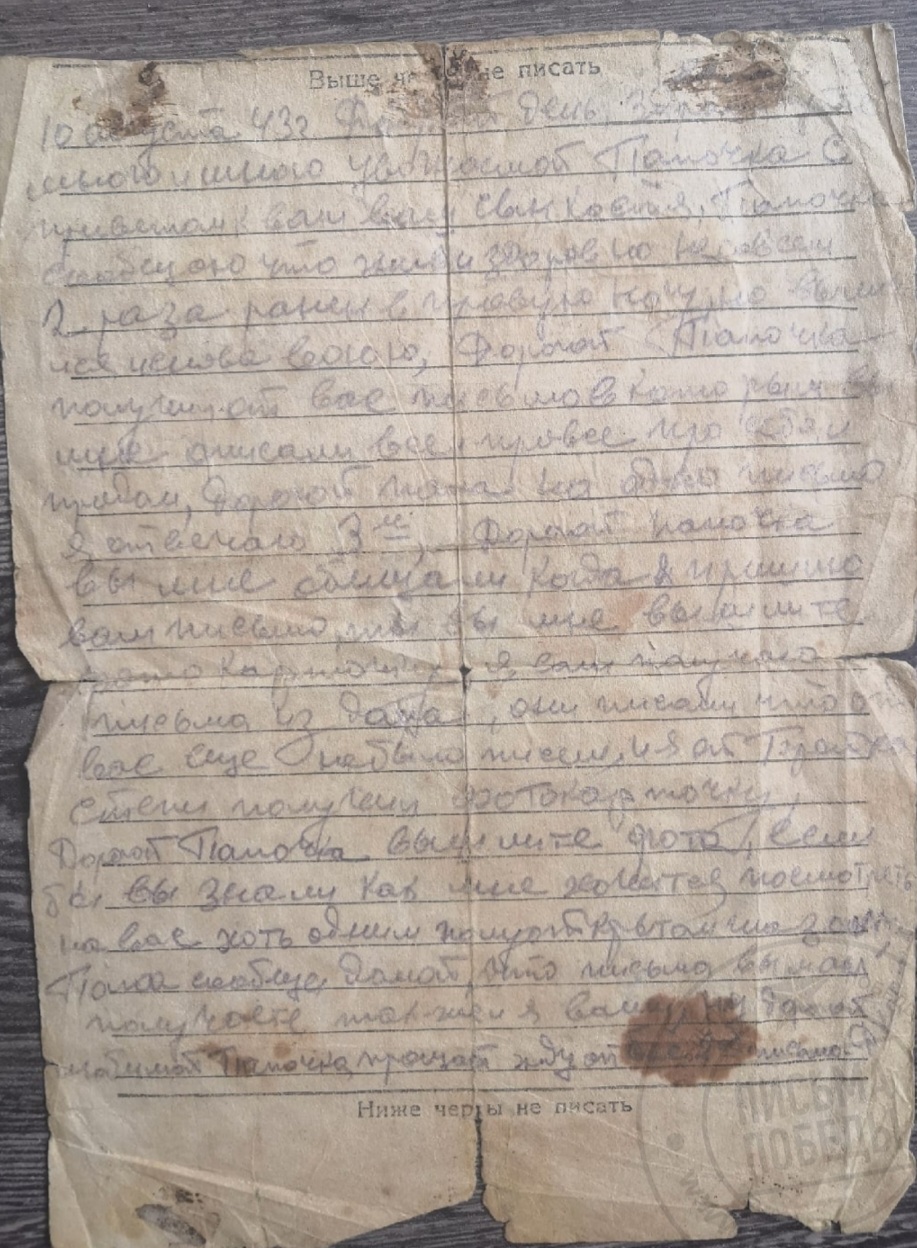 Выше не писать
10 августа 43г День
много много уважаемой Папочка с
приветом к вам ваш сын Костя, Папочка
сообщаю что жив и здоров но не совсем
2 раза ранен в правую но
снова воюю, Дорогой Папочка
получил от вас письмо в котором вы
мне описали все про себя и
Дорогой папа на одно письмо
я отвечаю 3 м, Дорогой папочка
вы мне обещали когда я пришлю
вам письмо, вы мне вышлите
фото карточку я, получаю
письма из дома, они писали что от
вас еще небыло писем, и я от
получил фотокарточку,
Дорогой Папочка вышлите фото, если
бы вы знали как мне хочется посмотреть
на вас хоть одним полуоткрытым
Папа сообщ домой, что письма вы мои
получаете так же и я ваши, ну дорогой
любимой Папочка, прощай жду от письма
Ниже черты не писать
ПИСЬМА
ПОБЕДЫ